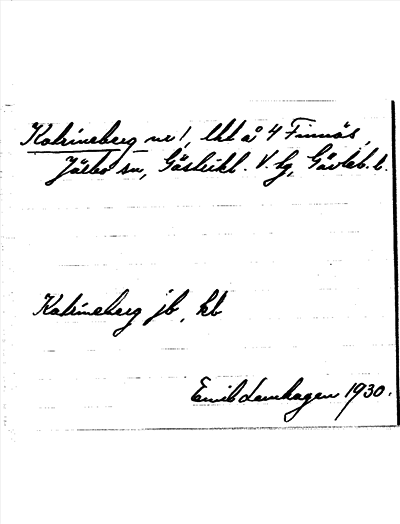 Katrineberg nr 1, lht å 4 Finnäs,
Järbo sn, Gästrikl. V. tg, Gävleb. l.
Katrineberg jb, kb
Emil Lamhagen 1930.